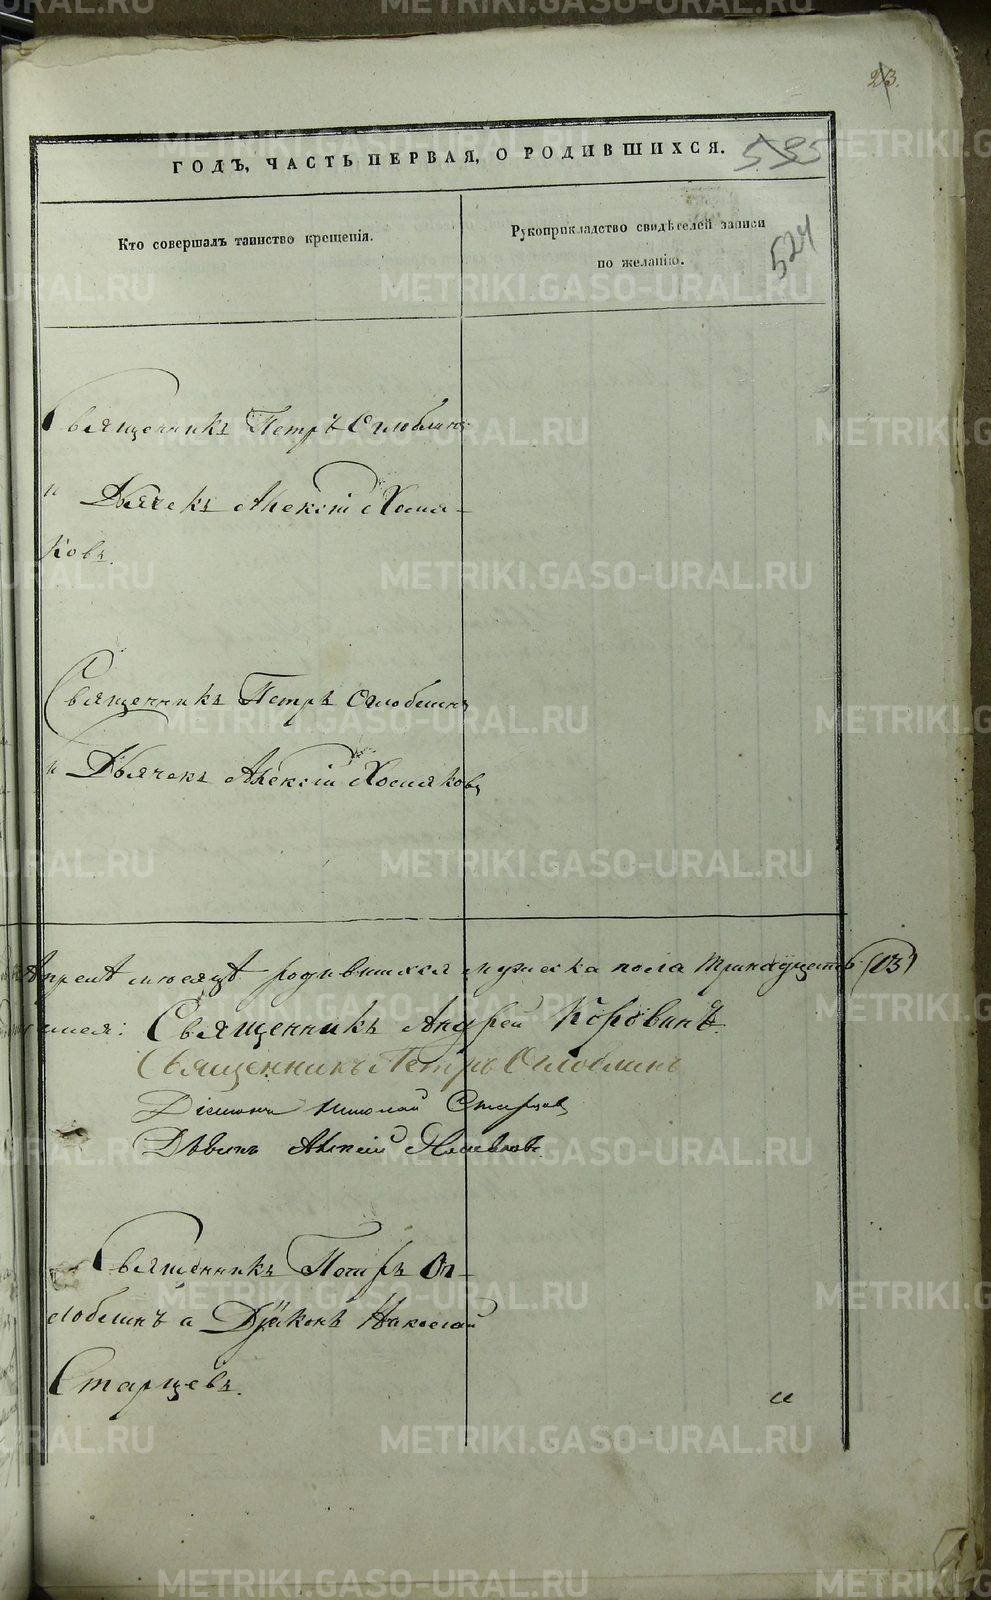 23.
ГОДЪ, ЧАСТЬ ПЕРВАЯ, О РОДИВШИХСЯ.
595
524
Кто совершалъ таинство крещенія.
Рукоприкладство свидѣтелей записи
по желанію.
Священникъ Петръ Оглоблинъ
и Дьячекъ Алексій Хомя-
ковъ.
Священникъ Петръ Оглоблинъ
и Дьячекъ Алексій Хомяковъ
Апрелѣ месяцѣ родившихся мужеска пола тринадцать (13)
Священникъ Андрей Коровинъ.
Священникъ Петръ Оглоблинъ
Діаконъ Николай Старцев
Алексій
Священникъ Петръ Ог-
лоблинъ а Дьяконъ Николай
Старцевъ.
METRIKI.GASO-URAL.RU